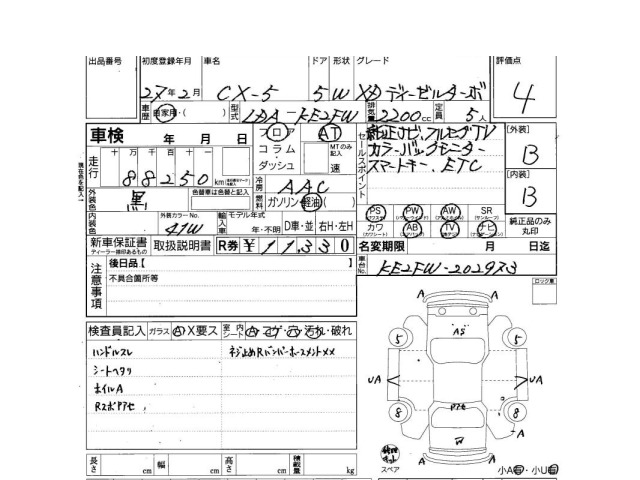 出品番号 初度登録年月 車名 ドア 形状 グレード 評価点
27年2月 CX-5 5 W XD ディーゼルターボ 4
車歴 自家用・( ) 型式 LDA-KE2FW 排気量 2200cc 定員 5人
車検 年 月 日 フロア AT セールスポイント 純正ナビ、フルセグTV [外装]
走行 十万 万 千 百 十 コラム・ダッシュ MTのみ記入 速 カラーバックモニター B
88250 km スマートキー、ETC
現在色を記入→
[内装]
外装色 黒 色替車は色替と記入 冷房 AAC B
燃料 ガソリン・軽油( )
内装色 外装カラーNo. 41W 輸入車 モデル年式 年・不明 D車・並 右H・左H
PS PW AW SR (サンルーフ) 純正品のみ丸印
カワ AB TV ナビ
新車保証書 取扱説明書 R券 ¥11330 名変期限 月 日迄
ディーラー捺印あるもの
注意事項 後日品【 】 車台No. KE2FW-202973
不具合箇所等 ロック車
検査員記入 ガラス A X要ス 室内シート コゲ・穴・汚れ・破れ
ハンドルスレ ネジ止めRバンパーホースメントXX
シートヘタリ
ホイルA
A A
AS
5 5
UA UA
8 8
A A
W
A A
スペア
長さ cm 幅 cm 高さ cm 積載量 kg 小A 小U